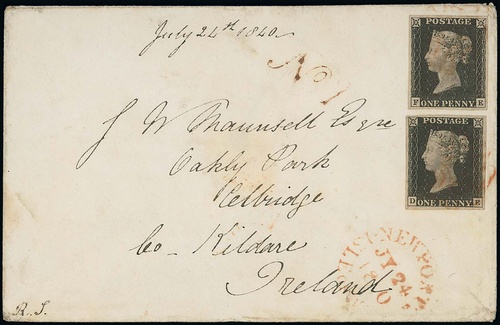 July 24th 1840
No 1
POSTAGE
F E
ONE PENNY
POSTAGE
D E
ONE PENNY
J W Maunsell Esqre
Oakly Park
Celbridge
Co - Kildare
Ireland
NEWPORT
JY 24
1840
R. S.